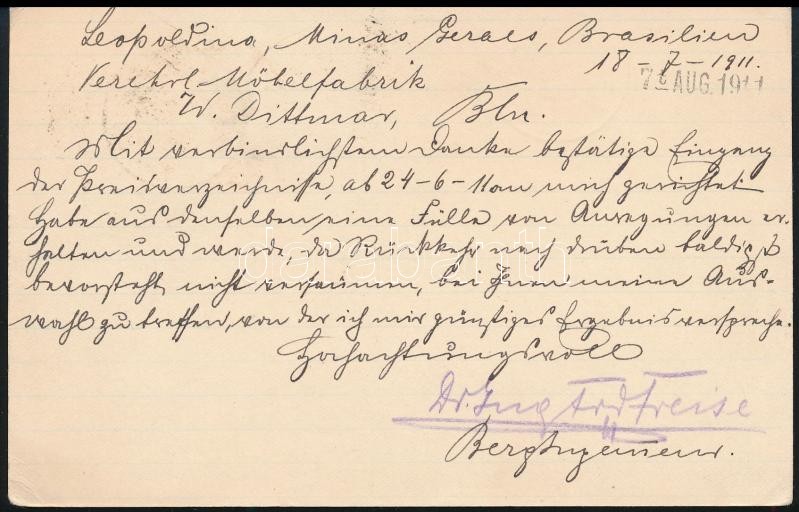 Leopoldina, Minas Geraes, Brasilien
18-7-1911.
7 AUG. 1911
Verehrl. Möbelfabrik
W. Dittmar, Bln.
Mit verbindlichstem Danke bestätige Eingang
der Preisverzeichnisse, ab 24-6-11 an mich gerichtet
Habe aus denselben eine Fülle von Anregungen er-
halten und werde, da Rückkehr nach drüben baldigst
bevorsteht, nicht versäumen, bei Ihnen meine Aus-
wahl zu treffen, von der ich mir günstiges Ergebnis verspreche.
Hochachtungsvoll
Dr. Ing Frd Freise
Bergingenieur.
darabanth